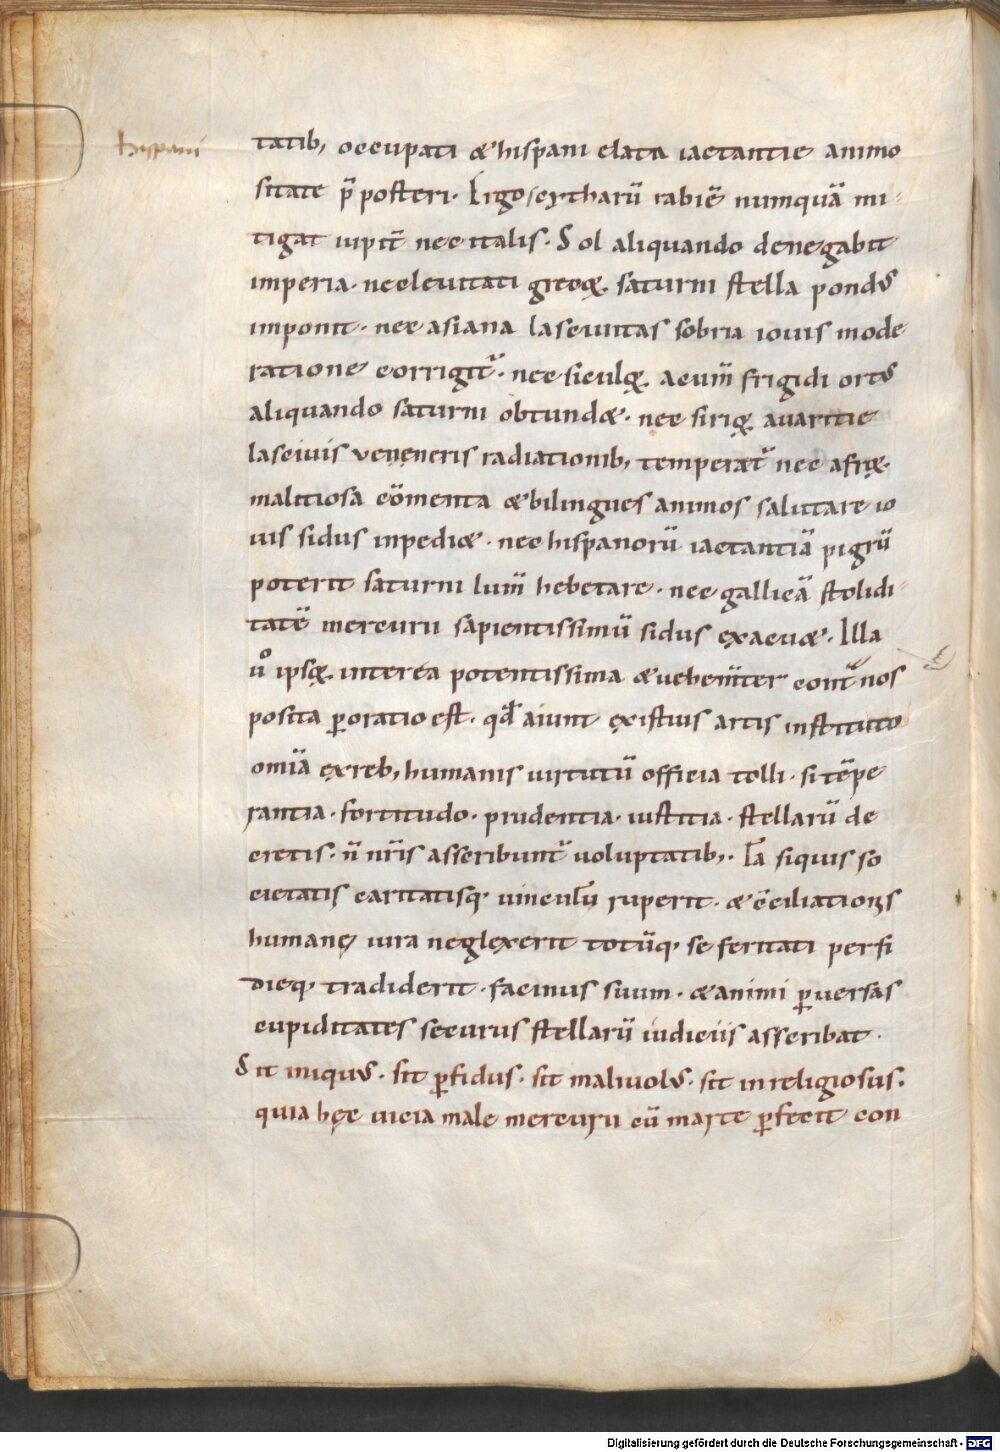 hispani
tatib, occupati & hispani elata iactantie animo
sitate p̄ posteri. Ligo scytharū rabiē numquā mi-
tigat iupit̄ nec italis. Sol aliquando denegabit
imperia. nec leuitati greceq;. saturni stella pondus
imponit. nec asiana lasciuitas sobria iouis mode
ratione corrigit̄. nec siculq;. acum̄ frigidi ortus
aliquando saturni obtund&. nec siriq;. auaritie
lasciuis veneneris radiationib, temperat̄ nec afrę.
malitiosa cōmenta & bilingues animos salutare io
uis sidus inpedi&. nec hispanorū iactantiā pigrū
poterit saturni lum̄ hebetare. nec gallicā stolidi-
tatē mercurii sapientissimū sidus exacu&. Illa
ū ipsę. interea potentissima & uehem̄ter cont̄ nos
posita ꝑoratio est. qd̄ aiunt existius artis instituto
omīa exreb, humanis uirtutū officia tolli. si tēpe
rantia. fortitudo. prudentia. iustitia. stellarū de
cretis. n̄ nr̄is asseribunt̄ uoluptatib,. Iā siquis so
cietatis caritatisq; uinculū ruperit. & cc̄iliationis
humanę iura neglexerit totūq; se feritati perfi
dieq; tradiderit. facinus suum. & animi ꝑuersas
cupiditates securus stellarū iudiciis asscribat.
Sit iniqus. sit ꝑfidus. sit maliuolus. sit inreligiosus.
quia hęc uicia male mercurii cū marte ꝑfecit con
Digitalisierung gefördert durch die Deutsche Forschungsgemeinschaft - DFG